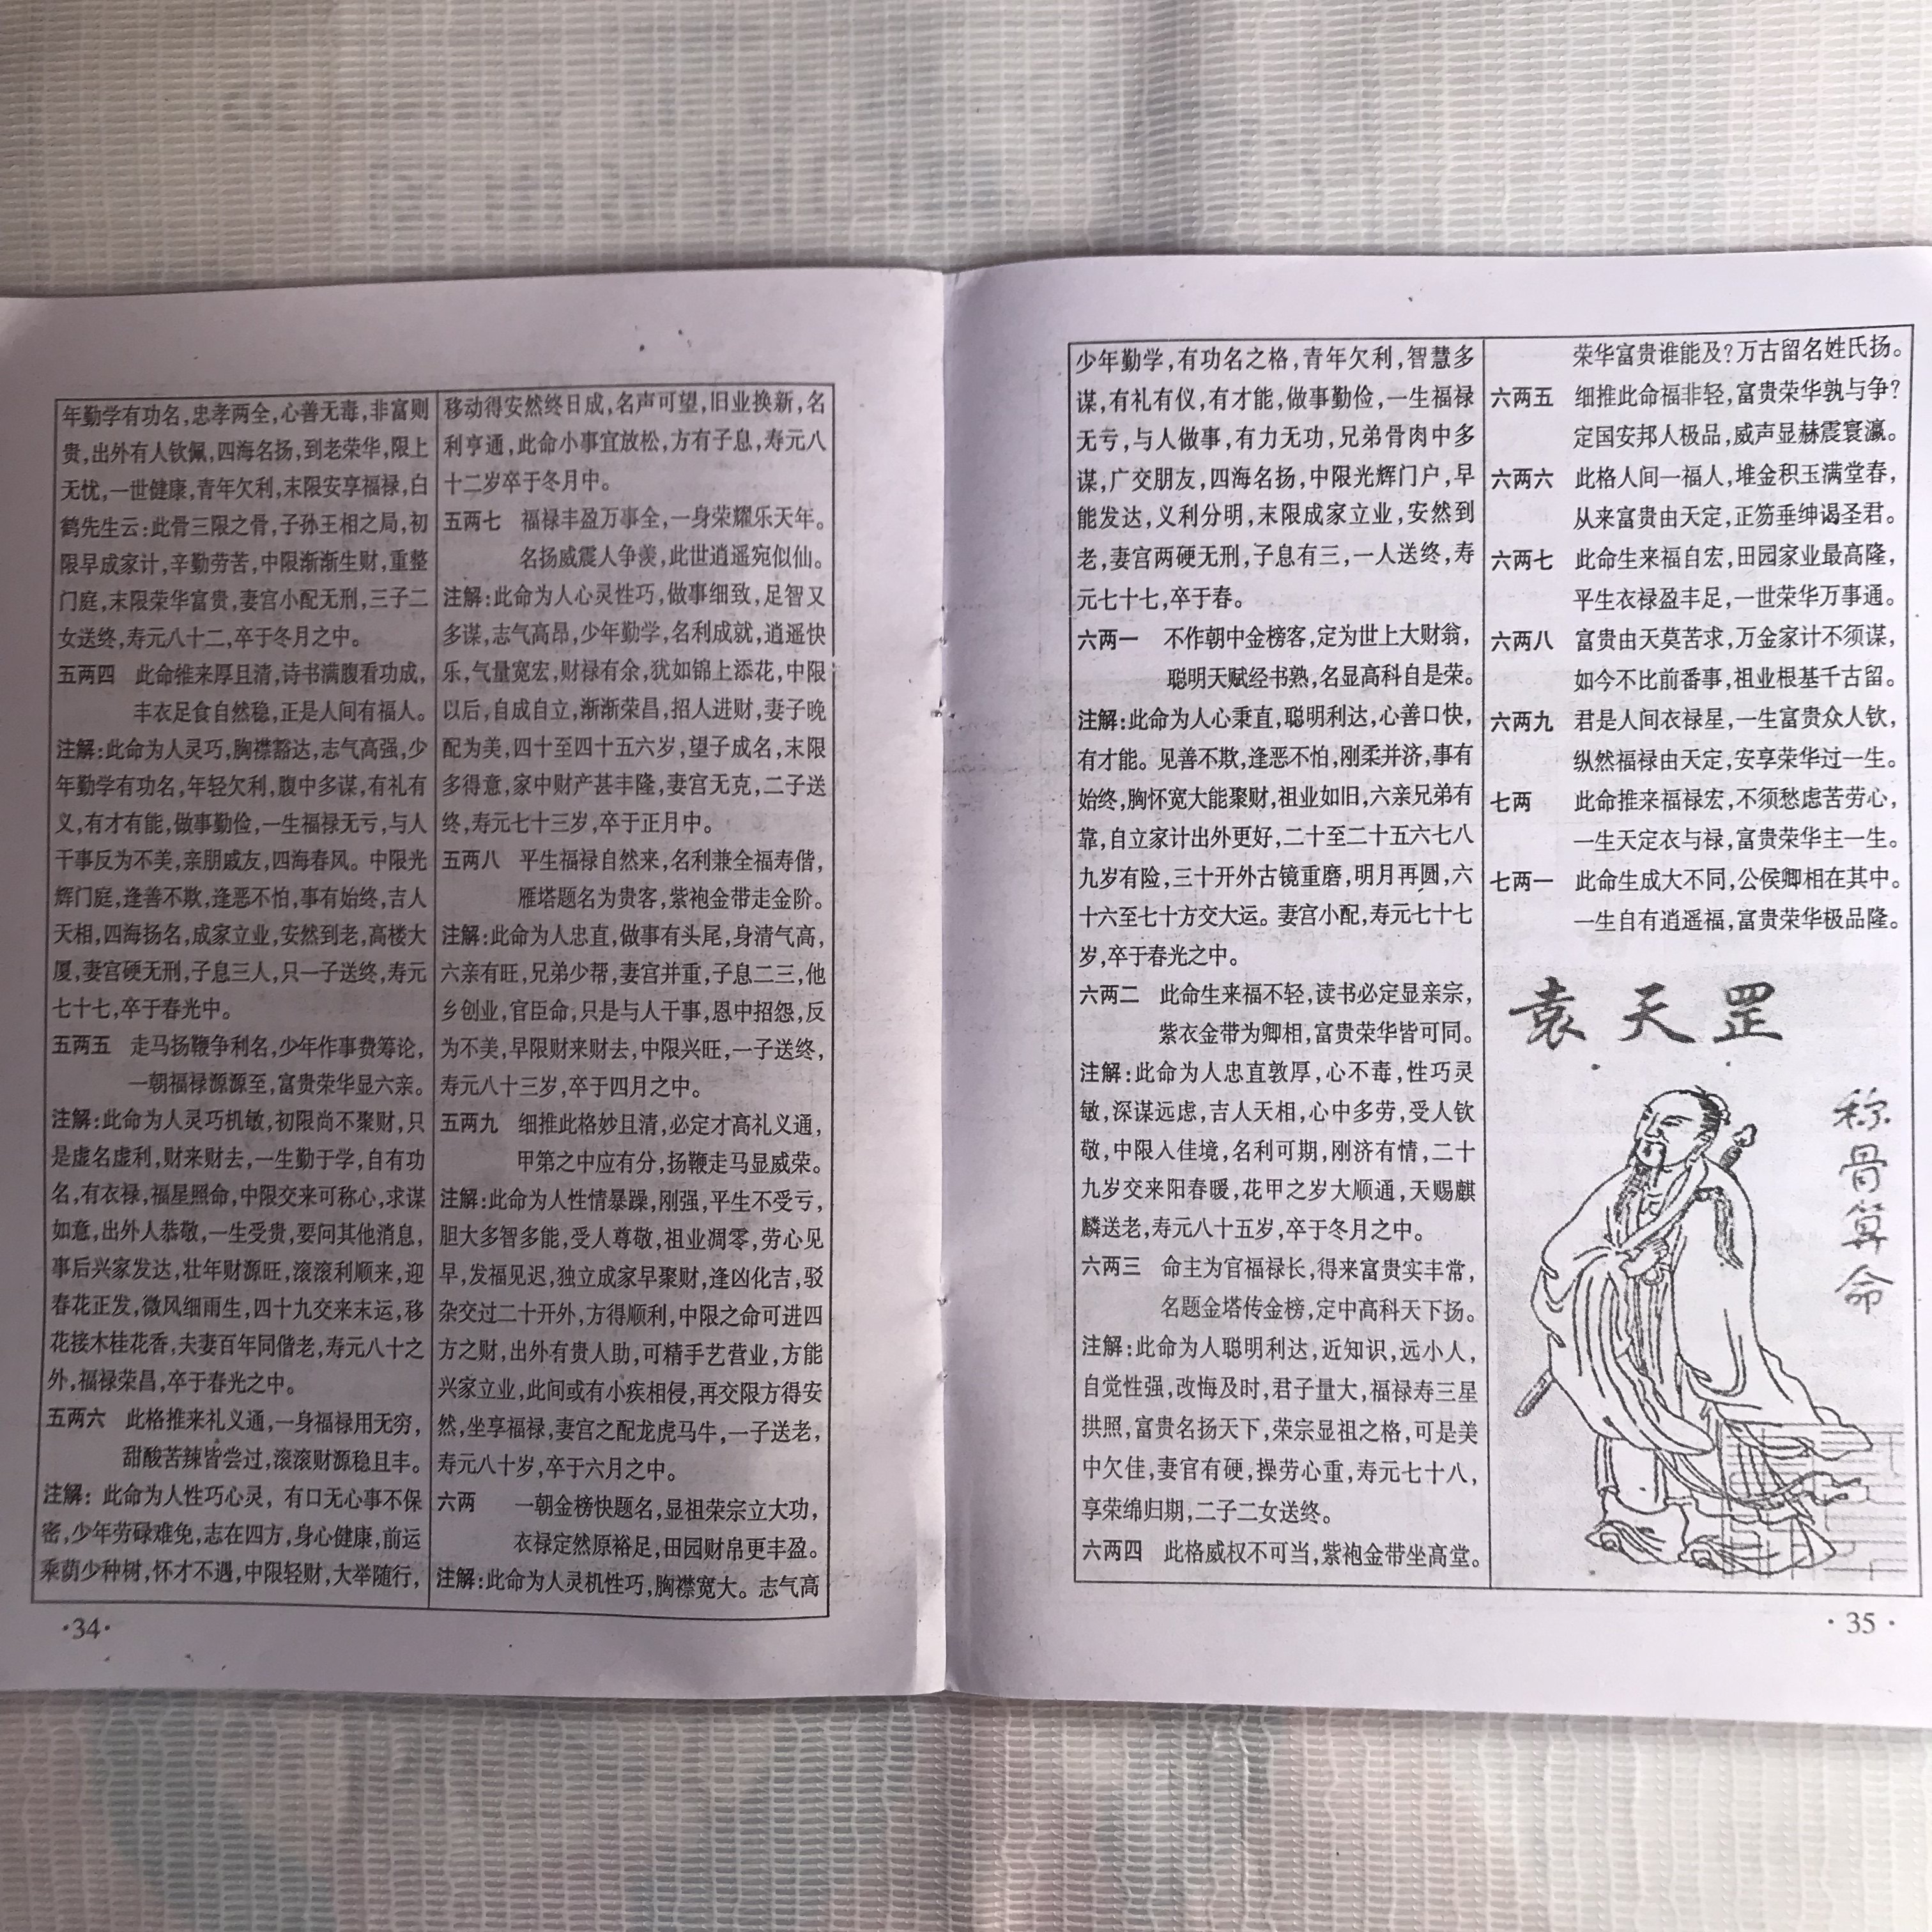 年勤学有功名,忠孝两全,心善无毒,非富则
贵,出外有人钦佩,四海名扬,到老荣华,限上
无忧,一世健康,青年欠利,末限安享福禄,白
鹤先生云:此骨三限之骨,子孙王相之局,初
限早成家计,辛勤劳苦,中限渐渐生财,重整
门庭,末限荣华富贵,妻宫小配无刑,三子二
女送终,寿元八十二,卒于冬月之中。
五两四 此命推来厚且清,诗书满腹看功成,
丰衣足食自然稳,正是人间有福人。
注解:此命为人灵巧,胸襟豁达,志气高强,少
年勤学有功名,年轻欠利,腹中多谋,有礼有
义,有才有能,做事勤俭,一生福禄无亏,与人
干事反为不美,亲朋戚友,四海春风。中限光
辉门庭,逢善不欺,逢恶不怕,事有始终,吉人
天相,四海扬名,成家立业,安然到老,高楼大
厦,妻宫硬无刑,子息三人,只一子送终,寿元
七十七,卒于春光中。
五两五 走马扬鞭争利名,少年作事费筹论,
一朝福禄源源至,富贵荣华显六亲。
注解:此命为人灵巧机敏,初限尚不聚财,只
是虚名虚利,财来财去,一生勤于学,自有功
名,有衣禄,福星照命,中限交来可称心,求谋
如意,出外人恭敬,一生受贵,要问其他消息,
事后兴家发达,壮年财源旺,滚滚利顺来,迎
春花正发,微风细雨生,四十九交来末运,移
花接木桂花香,夫妻百年同偕老,寿元八十之
外,福禄荣昌,卒于春光之中。
五两六 此格推来礼义通,一身福禄用无穷,
甜酸苦辣皆尝过,滚滚财源稳且丰。
注解:此命为人性巧心灵,有口无心事不保
密,少年劳碌难免,志在四方,身心健康,前运
乘荫少种树,怀才不遇,中限轻财,大举随行,
·34·
移动得安然终日成,名声可望,旧业换新,名
利亨通,此命小事宜放松,方有子息,寿元八
十二岁卒于冬月中。
五两七 福禄丰盈万事全,一身荣耀乐天年。
名扬威震人争羡,此世逍遥宛似仙。
注解:此命为人心灵性巧,做事细致,足智又
多谋,志气高昂,少年勤学,名利成就,逍遥快
乐,气量宽宏,财禄有余,犹如锦上添花,中限
以后,自成自立,渐渐荣昌,招人进财,妻子晚
配为美,四十至四十五六岁,望子成名,末限
多得意,家中财产甚丰隆,妻宫无克,二子送
终,寿元七十三岁,卒于正月中。
五两八 平生福禄自然来,名利兼全福寿偕,
雁塔题名为贵客,紫袍金带走金阶。
注解:此命为人忠直,做事有头尾,身清气高,
六亲有旺,兄弟少帮,妻宫并重,子息二三,他
乡创业,官臣命,只是与人干事,恩中招怨,反
为不美,早限财来财去,中限兴旺,一子送终,
寿元八十三岁,卒于四月之中。
五两九 细推此格妙且清,必定才高礼义通,
甲第之中应有分,扬鞭走马显威荣。
注解:此命为人性情暴躁,刚强,平生不受亏,
胆大多智多能,受人尊敬,祖业凋零,劳心见
早,发福见迟,独立成家早聚财,逢凶化吉,驳
杂交过二十开外,方得顺利,中限之命可进四
方之财,出外有贵人助,可精手艺营业,方能
兴家立业,此间或有小疾相侵,再交限方得安
然,坐享福禄,妻宫之配龙虎马牛,一子送老,
寿元八十岁,卒于六月之中。
六两 一朝金榜快题名,显祖荣宗立大功,
衣禄定然原裕足,田园财帛更丰盈。
注解:此命为人灵机性巧,胸襟宽大。志气高
少年勤学,有功名之格,青年欠利,智慧多
谋,有礼有仪,有才能,做事勤俭,一生福禄
无亏,与人做事,有力无功,兄弟骨肉中多
谋,广交朋友,四海名扬,中限光辉门户,早
能发达,义利分明,末限成家立业,安然到
老,妻宫两硬无刑,子息有三,一人送终,寿
元七十七,卒于春。
六两一 不作朝中金榜客,定为世上大财翁,
聪明天赋经书熟,名显高科自是荣。
注解:此命为人心秉直,聪明利达,心善口快,
有才能。见善不欺,逢恶不怕,刚柔并济,事有
始终,胸怀宽大能聚财,祖业如旧,六亲兄弟有
靠,自立家计出外更好,二十至二十五六七八
九岁有险,三十开外古镜重磨,明月再圆,六
十六至七十方交大运。妻宫小配,寿元七十七
岁,卒于春光之中。
六两二 此命生来福不轻,读书必定显亲宗,
紫衣金带为卿相,富贵荣华皆可同。
注解:此命为人忠直敦厚,心不毒,性巧灵
敏,深谋远虑,吉人天相,心中多劳,受人钦
敬,中限入佳境,名利可期,刚济有情,二十
九岁交来阳春暖,花甲之岁大顺通,天赐麒
麟送老,寿元八十五岁,卒于冬月之中。
六两三 命主为官福禄长,得来富贵实丰常,
名题金塔传金榜,定中高科天下扬。
注解:此命为人聪明利达,近知识,远小人,
自觉性强,改悔及时,君子量大,福禄寿三星
拱照,富贵名扬天下,荣宗显祖之格,可是美
中欠佳,妻官有硬,操劳心重,寿元七十八,
享荣绵归期,二子二女送终。
六两四 此格威权不可当,紫袍金带坐高堂。
荣华富贵谁能及?万古留名姓氏扬。
六两五 细推此命福非轻,富贵荣华孰与争?
定国安邦人极品,威声显赫震寰瀛。
六两六 此格人间一福人,堆金积玉满堂春,
从来富贵由天定,正笏垂绅谒圣君。
六两七 此命生来福自宏,田园家业最高隆,
平生衣禄盈丰足,一世荣华万事通。
六两八 富贵由天莫苦求,万金家计不须谋,
如今不比前番事,祖业根基千古留。
六两九 君是人间衣禄星,一生富贵众人钦,
纵然福禄由天定,安享荣华过一生。
七两 此命推来福禄宏,不须愁虑苦劳心,
一生天定衣与禄,富贵荣华主一生。
七两一 此命生成大不同,公侯卿相在其中。
一生自有逍遥福,富贵荣华极品隆。
袁天罡
称骨算命
·35·